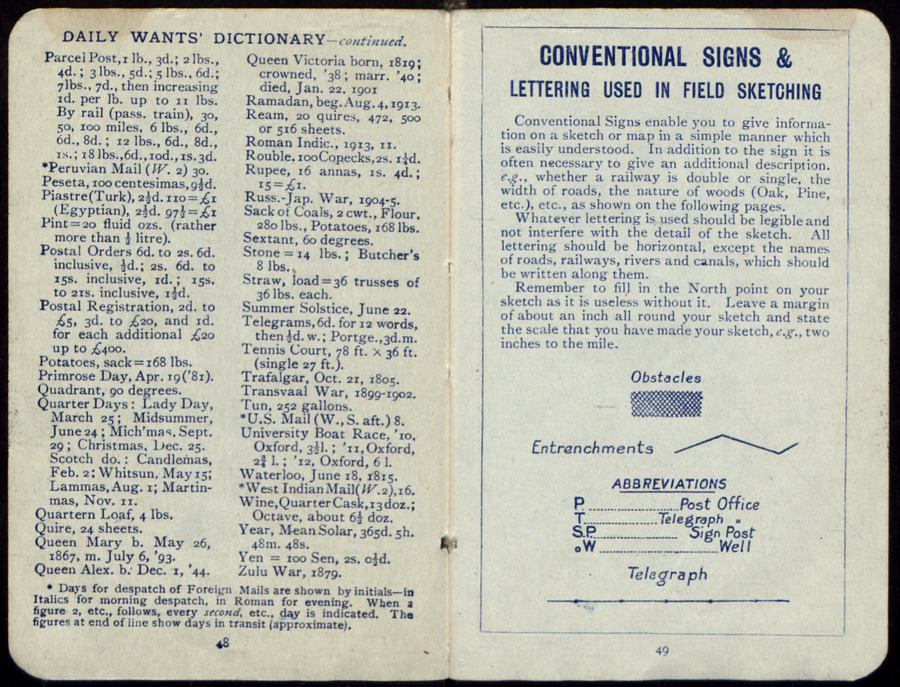 DAILY WANTS' DICTIONARY—continued.
Parcel Post, 1 lb., 3d.; 2 lbs.,
4d.; 3 lbs., 5d.; 5 lbs., 6d.;
7lbs., 7d., then increasing
1d. per lb. up to 11 lbs.
By rail (pass. train), 30,
50, 100 miles, 6 lbs., 6d.,
6d., 8d.; 12 lbs., 6d., 8d.,
1s.; 18 lbs., 6d., 10d., 1s. 3d.
*Peruvian Mail (W. 2) 30.
Peseta, 100 centesimas, 9½d.
Piastre (Turk), 2½d. 110=£1
(Egyptian), 2½d. 97½=£1
Pint=20 fluid ozs. (rather
more than ½ litre).
Postal Orders 6d. to 2s. 6d.
inclusive, ½d.; 2s. 6d. to
15s. inclusive, 1d.; 15s.
to 21s. inclusive, 1½d.
Postal Registration, 2d. to
£5, 3d. to £20, and 1d.
for each additional £20
up to £400.
Potatoes, sack=168 lbs.
Primrose Day, Apr. 19 ('81).
Quadrant, 90 degrees.
Quarter Days: Lady Day,
March 25; Midsummer,
June 24; Mich'mas, Sept.
29; Christmas, Dec. 25.
Scotch do.: Candlemas,
Feb. 2; Whitsun, May 15;
Lammas, Aug. 1; Martin-
mas, Nov. 11.
Quartern Loaf, 4 lbs.
Quire, 24 sheets.
Queen Mary b. May 26,
1867, m. July 6, '93.
Queen Alex. b. Dec. 1, '44.
Queen Victoria born, 1819;
crowned, '38; marr. '40;
died, Jan. 22, 1901
Ramadan, beg. Aug. 4, 1913.
Ream, 20 quires, 472, 500
or 516 sheets.
Roman Indic., 1913, 11.
Rouble, 100 Copecks, 2s. 1¼d.
Rupee, 16 annas, 1s. 4d.;
15=£1.
Russ.-Jap. War, 1904-5.
Sack of Coals, 2 cwt., Flour,
280 lbs., Potatoes, 168 lbs.
Sextant, 60 degrees.
Stone = 14 lbs.; Butcher's
8 lbs.
Straw, load=36 trusses of
36 lbs. each.
Summer Solstice, June 22.
Telegrams, 6d. for 12 words,
then ½d. w.; Portge., 3d. m.
Tennis Court, 78 ft. × 36 ft.
(single 27 ft.).
Trafalgar, Oct. 21, 1805.
Transvaal War, 1899-1902.
Tun, 252 gallons.
*U.S. Mail (W., S. aft.) 8.
University Boat Race, '10,
Oxford, 3½ l.; '11, Oxford,
2¾ l.; '12, Oxford, 6 l.
Waterloo, June 18, 1815.
*West Indian Mail (W. 2), 16.
Wine, Quarter Cask, 13 doz.;
Octave, about 6½ doz.
Year, Mean Solar, 365d. 5h.
48m. 48s.
Yen = 100 Sen, 2s. 0½d.
Zulu War, 1879.
* Days for despatch of Foreign Mails are shown by initials—in
Italics for morning despatch, in Roman for evening. When a
figure 2, etc., follows, every second, etc., day is indicated. The
figures at end of line show days in transit (approximate).
48
CONVENTIONAL SIGNS &
LETTERING USED IN FIELD SKETCHING
Conventional Signs enable you to give informa-
tion on a sketch or map in a simple manner which
is easily understood. In addition to the sign it is
often necessary to give an additional description.
e.g., whether a railway is double or single, the
width of roads, the nature of woods (Oak, Pine,
etc.), etc., as shown on the following pages.
Whatever lettering is used should be legible and
not interfere with the detail of the sketch. All
lettering should be horizontal, except the names
of roads, railways, rivers and canals, which should
be written along them.
Remember to fill in the North point on your
sketch as it is useless without it. Leave a margin
of about an inch all round your sketch and state
the scale that you have made your sketch, e.g., two
inches to the mile.
Obstacles
Entrenchments
ABBREVIATIONS
P. ........................ Post Office
T. ........................ Telegraph „
S.P. ........................ Sign Post
oW ........................ Well
Telegraph
49